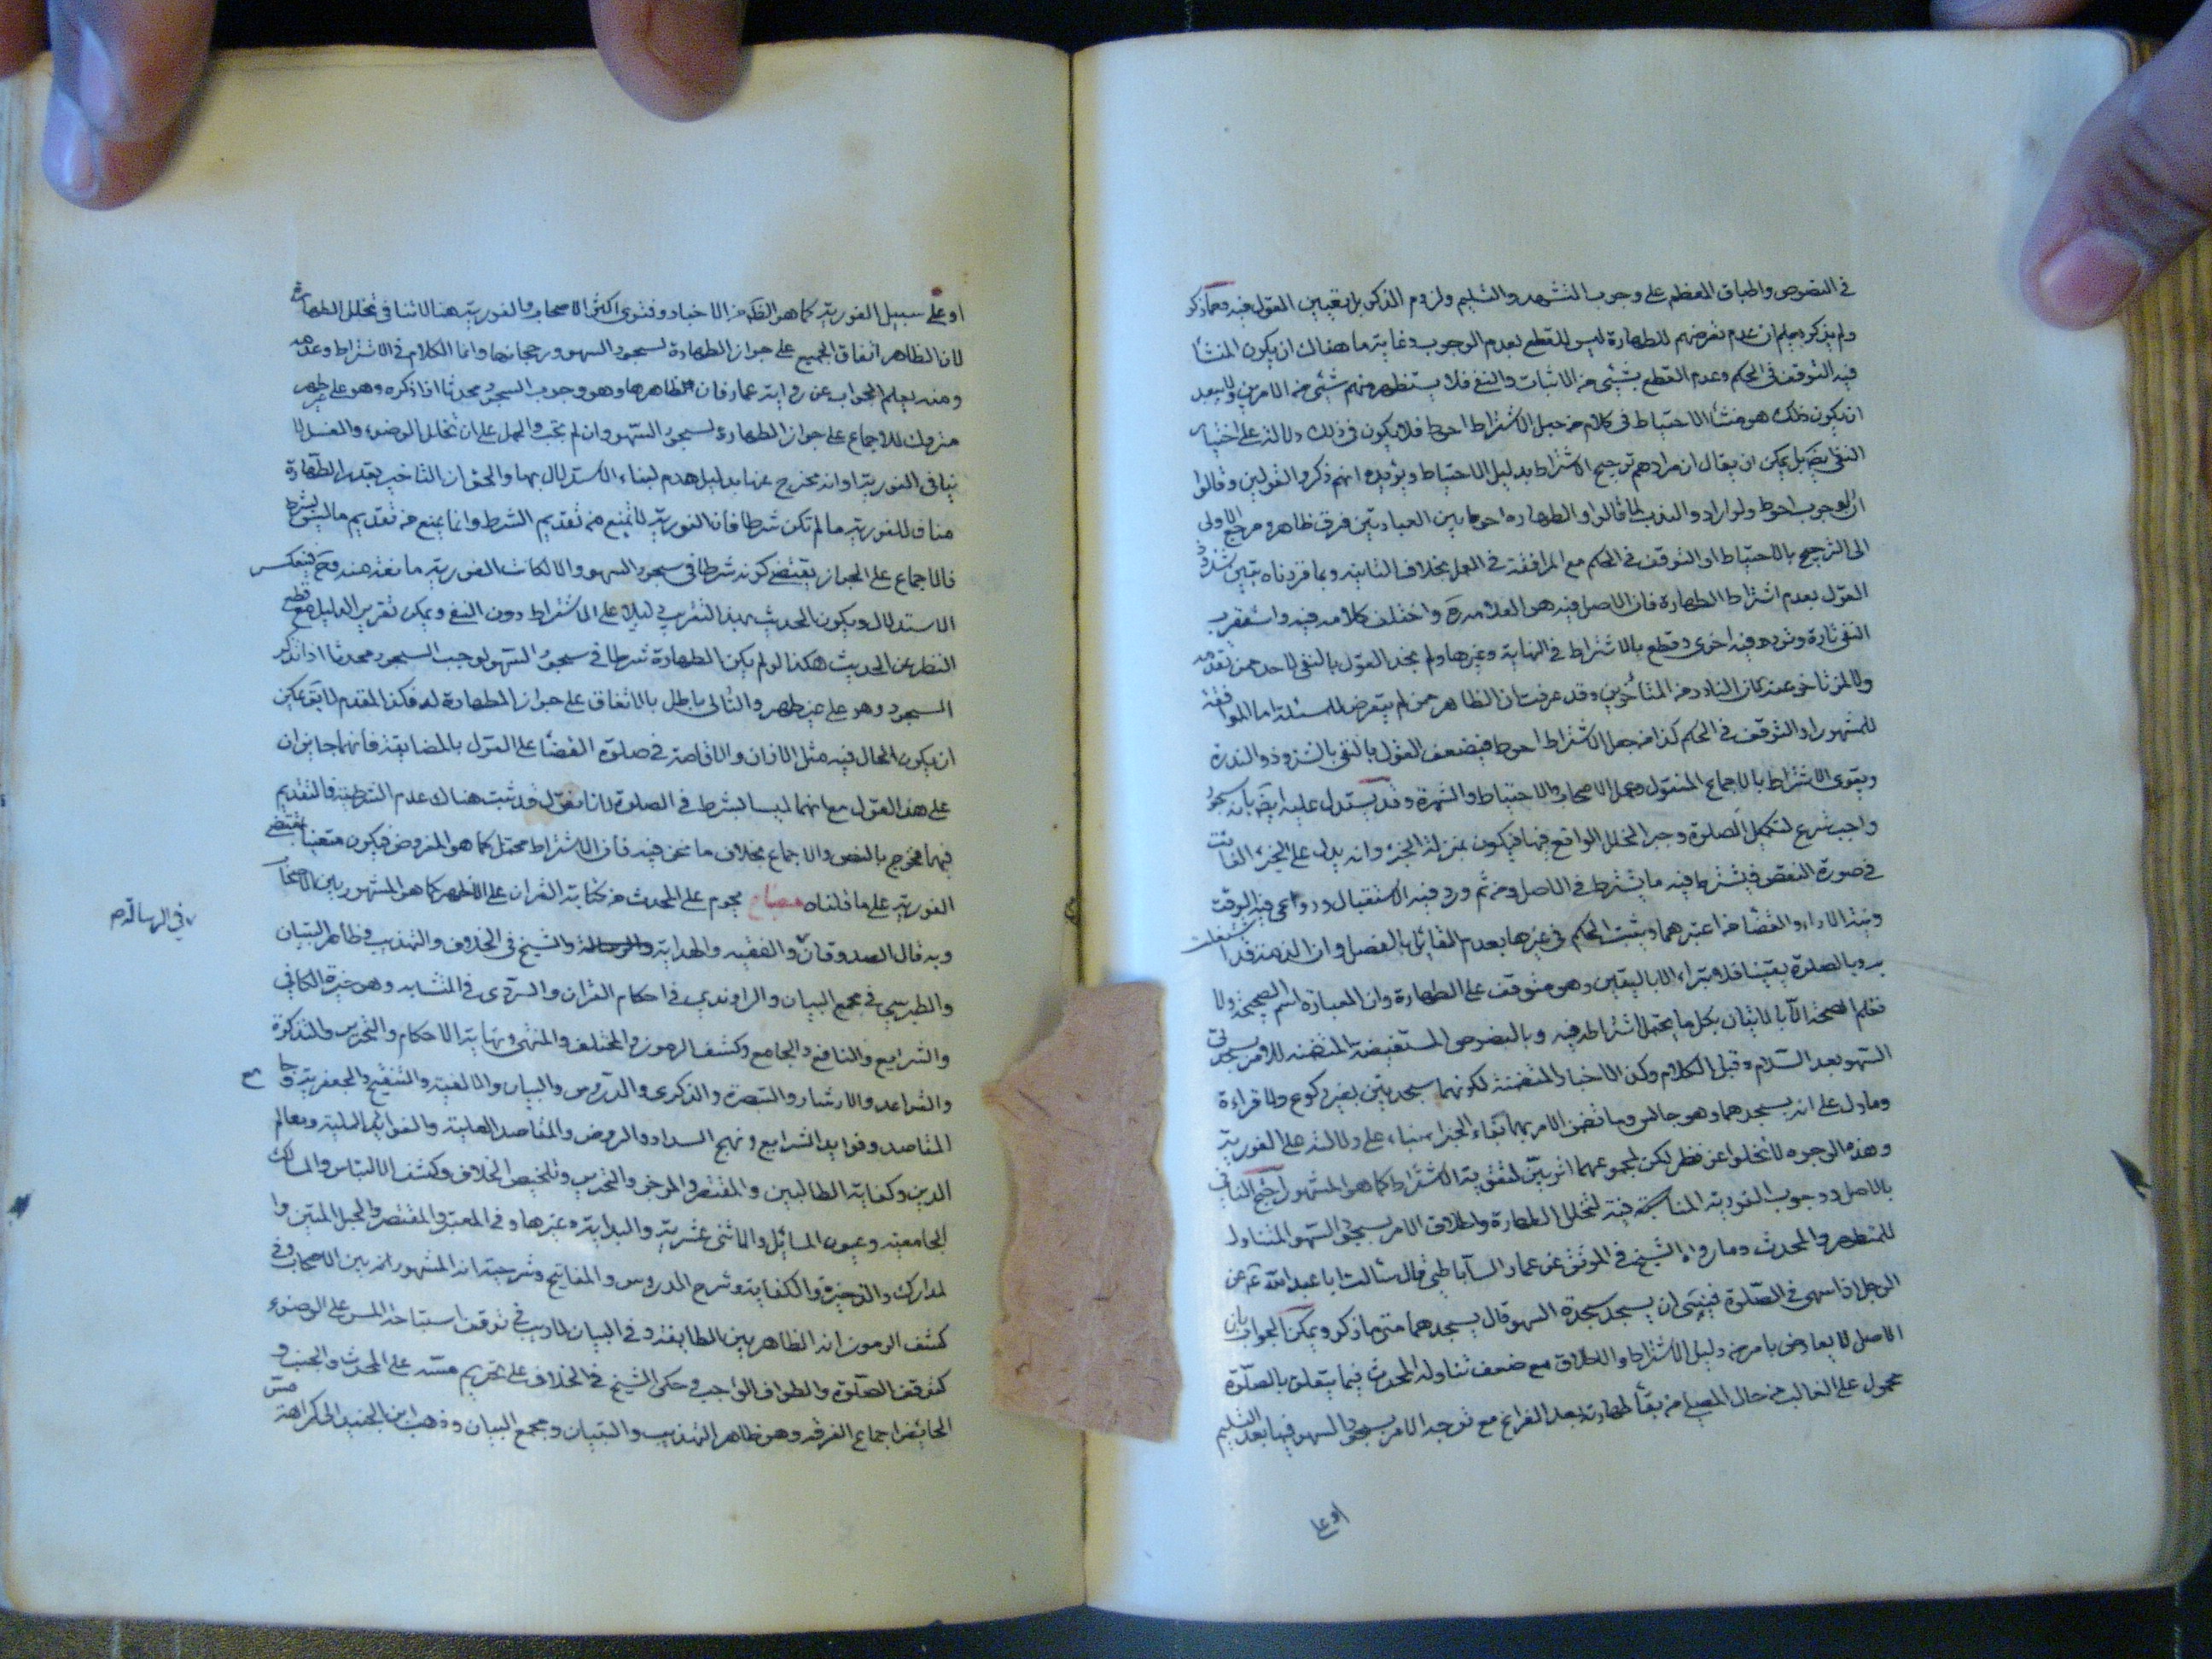 في النصوص واطباق المعظم على وجوب التشهد والتسليم ولزوم الذكر بل تعيين القول فيه ومما ذكر
ولم يذكر يعلم ان عدم تعرضهم للطهارة ليس للقطع بعدم الوجوب وغاية ما هناك ان يكون المنشأ
فيه التوقف في الحكم وعدم القطع بشيء من الاثبات والنفي فلا يستظهر منهم شيء من الامرين ولا يبعد
ان يكون ذلك هو منشأ الاحتياط في كلام من جعل الاشتراط احوط فلا يكون في ذلك دلالة على اختيار
النفي ايضا بل يمكن ان يقال ان مرادهم ترجيح الاشتراط بدليل الاحتياط ويؤيده انهم ذكروا القولين وقالوا
ان الوجوب احوط ولو ارادوا الندب لما قالوا والطهارة احوط وبين العبارتين فرق ظاهر ومرجع الاولى
الى الترجيح بالاحتياط او التوقف في الحكم مع الموافقة في العمل بخلاف الثانية وبما قررناه تبين شذوذ
القول بعدم اشتراط الطهارة فان الاصل فيه هو العلامة ره واختلف كلامه فيه واستقرب
النفي تارة وتردد فيه اخرى وقطع بالاشتراط في النهاية وغيرها ولم نجد القول بالنفي لاحد ممن تقدمه
ولا لمن تاخر عنه كان النادر من المتأخرين وقد عرفت ان الظاهر ممن لم يتعرض للمسئلة اما الموافقة
للمشهور او التوقف في الحكم كذا من جعل الاشتراط احوط فيضعف القول بالنفي بالشذوذ والندرة
ويقوى الاشتراط بالاجماع المنقول وعمل الاصحاب والاحتياط والشهرة وقد يستدل عليه ايضا بانه سجود
واجب شرع لتكميل الصلوة وجبر الخلل الواقع فيها فيكون بمنزلة الجزء وانه بدل على الجزء الفائت
في صورة النقص فيشترط فيه ما يشترط في الاصل ومن ثم ورد فيه الاستقبال وروعي فيه الوقت
ونية الاداء والقضا من اعتبرهما ويثبت الحكم في غيرها بعدم القائل بالفصل وان الذمة قد اشتغلت
به وبالصلوة يقينا فلا تبراء الا باليقين وهو متوقف على الطهارة وان العبادة اسم الصحيحة ولا
تعلم الصحة الا بالاتيان بكل ما يحتمل اشتراطه فيه وبالنصوص المستفيضة المتضمنة للامر بسجدتي
السهو بعد السلام وقبل الكلام وكذا الاخبار المتضمنة لكونهما سجدتين بغير ركوع ولا قراءة
وما دل على انه يسجدهما وهو جالس وما تضمن الامر بهما بفاء الجزاء بناء على دلالته على الفورية
وهذه الوجوه لا تخلوا عن نظر لكن لمجموعهما اثر بين لتقوية الاشتراط كما هو المشهور احتج النافي
بالاصل ووجوب الفورية المنافية لتخلل الطهارة واطلاق الامر بسجود السهو المتناول
للمتطهر والمحدث وما رواه الشيخ في الموثق عن عمار الساباطي قال سئلت ابا عبد الله ع عن
الرجل اذا سهى في الصلوة فينسى ان يسجد سجدة السهو قال يسجدهما متى ما ذكر ويمكن الجواب بان
الاصل لا يعارض ما مر من دليل الاشتراط والاطلاق مع ضعف تناوله المحدث فيما يتعلق بالصلوة
محمول على الغالب من حال المصلي من بقاء طهارته بعد الفراغ مع توجه الامر بسجود السهو فيها بعد التسليم
او على
او على سبيل الفورية كما هو الظاهر من الاخبار وفتوى اكثر الاصحاب والفورية هنا لا تنافي تخلل الطهارة
لان الظاهر اتفاق الجميع على جواز الطهارة لسجود السهو ورجحانها وانما الكلام في الاشتراط وعدمه
ومنه يعلم الجواب عن رواية عمار فان ظاهرها وهو وجوب السجود محدثا اذا ذكره وهو على غير طهر
متروك للاجماع على جواز الطهارة لسجود السهو وان لم تجب والحمل على ان تخلل الوضوء والغسل لا
ينافي الفورية او انه مخرج عنها بدليل هدم لبناء الاستدلال بها والحق ان التاخير بقدر الطهارة
مناف للفورية ما لم تكن شرطا فان الفورية لا تمنع من تقديم الشرط وانما يمنع من تقديم ما ليس بشرط
فالاجماع على الجواز يقتضي كونه شرطا في سجود السهو والا لكانت الفورية مانعة منه وح فينعكس
الاستدلال ويكون الحديث بهذا التقريب دليلا على الاشتراط دون النفي ويمكن تقرير الدليل مع قطع
النظر عن الحديث هكذا لو لم يكن الطهارة شرطا في سجود السهو لوجب السجود محدثا اذا ذكر
السجود وهو على غير طهر والتالي باطل بالاتفاق على جواز الطهارة له فكذا المقدم لا يق يمكن
ان يكون الحال فيه مثل الاذان والاقامة في صلوة القضا على القول بالمضايقة فانهما جايزان
على هذا القول مع انهما ليسا بشرط في الصلوة لانا نقول قد ثبت هناك عدم الشرطية فالتقديم
فيهما مخرج بالنص والاجماع بخلاف ما نحن فيه فان الاشتراط محتمل كما هو المفروض فيكون متعينا بمقتضى
الفورية على ما قلناه مصباح يحرم على المحدث مس كتابة القران على الاظهر كما هو المشهور بين الاصحاب
وبه قال الصدوقان والفقيه والهداية والرسالة والشيخ في الخلاف والتهذيب وظاهر التبيان
في الرسالة م
والطبرسي في مجمع البيان والراوندي في احكام القران والسروي في المتشابه وهو خيرة الكافي
والشرايع والنافع والجامع وكشف الرموز والمختلف والمنتهى ونهاية الاحكام والتحرير والتذكرة
والقواعد والارشاد والتبصرة والذكرى والدروس والبيان والالفية والتنقيح والجعفرية وجا مع
المقاصد وفوايد الشرايع ونهج السداد والروض والمقاصد العلية والفوايد الملية ومعالم
الدين وكفاية الطالبين والمقتصر والموجز والتحرير وتلخيص الخلاف وكشف الالتباس والمسالك
الجامعية وعيون المسايل والاثنى عشرية والبداية وغيرها وفي المعتبر والمقتصر والحبل المتين وا
لمدارك والذخيرة والكفاية وشرح الدروس والمفاتيح وشرحيه انه المشهور انه بين الاصحاب وفي
كشف الرموز انه الظاهر بين الطايفة وفي البيان لا ريب في توقف استباحة المس على الوضوء
كتوقف الصلوة والطواف الواجب وحكى الشيخ في الخلاف على تحريم مسه على المحدث والجنب و
الحائض اجماع الفرقة وهو ظاهر التهذيب والتبيان ومجمع البيان وذهب ابن الجنيد الى كراهة مس